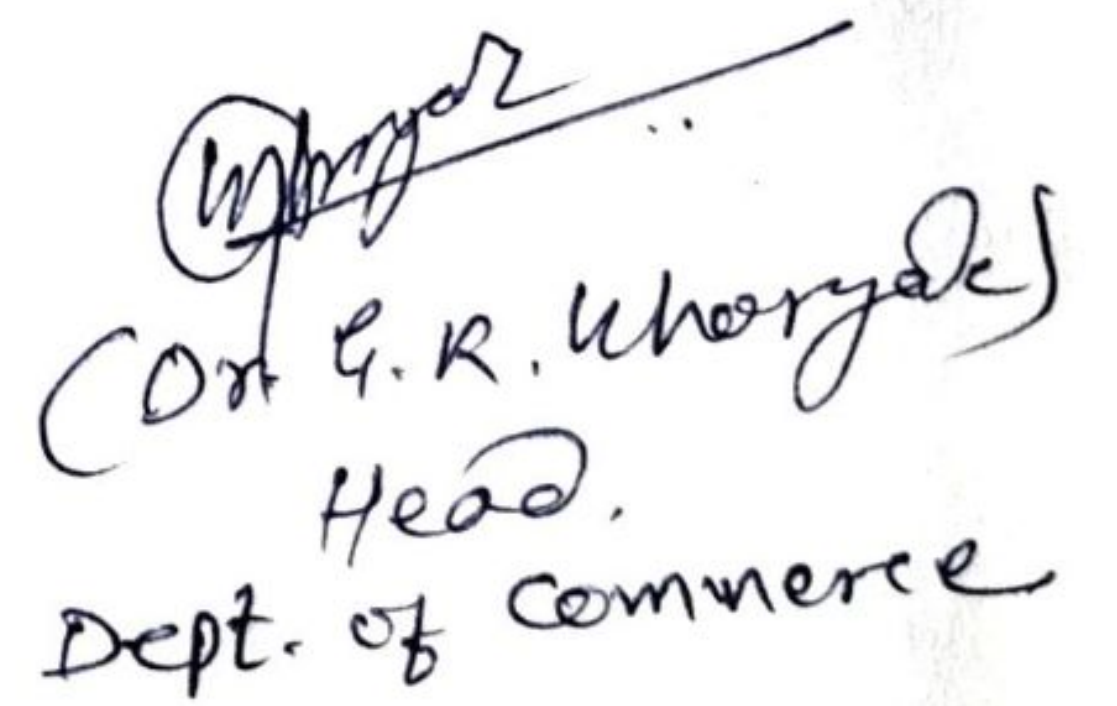 (Dr. G. R. Khoryade)
Head.
Dept. of Commerce